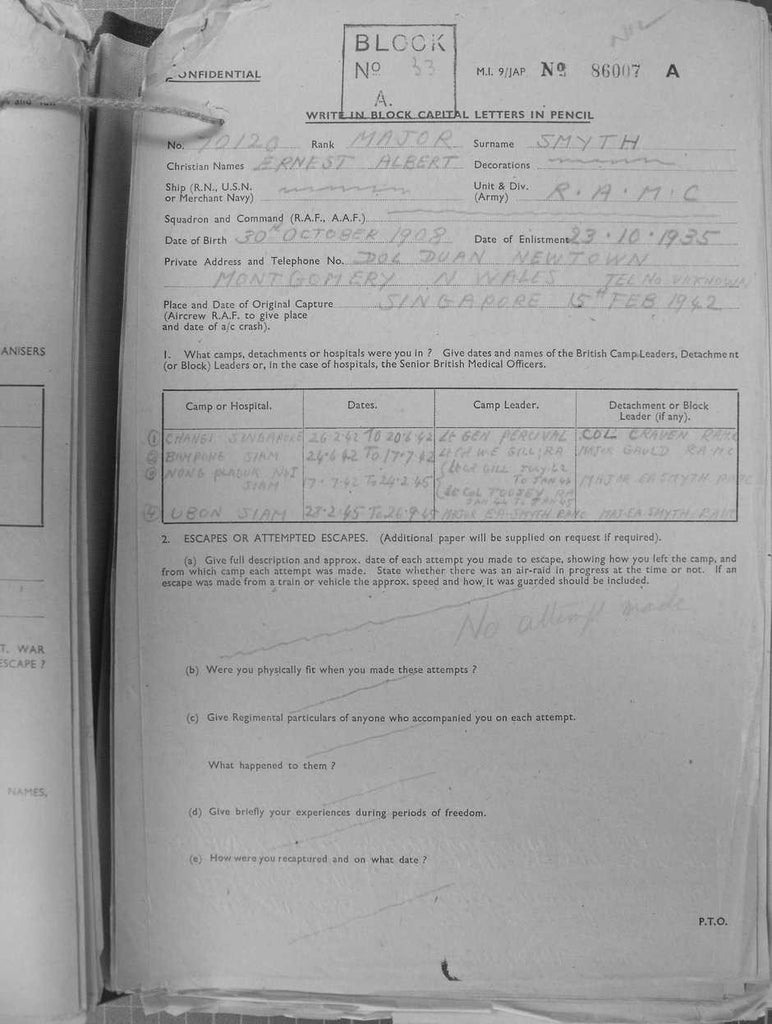 BLOCK
No 33
A.
CONFIDENTIAL
M.I. 9/JAP No 86007 A
WRITE IN BLOCK CAPITAL LETTERS IN PENCIL
No. 70120 Rank MAJOR Surname SMYTH
Christian Names ERNEST ALBERT Decorations
Ship (R.N., U.S.N. or Merchant Navy)
Unit & Div. (Army) R.A.M.C
Squadron and Command (R.A.F., A.A.F.)
Date of Birth 30TH OCTOBER 1908 Date of Enlistment 23.10.1935
Private Address and Telephone No. DOL DUAN NEWTOWN
MONTGOMERY N WALES TEL No UNKNOWN
Place and Date of Original Capture SINGAPORE 15TH FEB 1942
(Aircrew R.A.F. to give place
and date of a/c crash).
1. What camps, detachments or hospitals were you in ? Give dates and names of the British Camp Leaders, Detachment
(or Block) Leaders or, in the case of hospitals, the Senior British Medical Officers.
Camp or Hospital. Dates. Camp Leader. Detachment or Block
Leader (if any).
① CHANGI SINGAPORE 26.2.42 TO 20.6.42 Lt GEN PERCIVAL COL CRAVEN RAMC
② BAMPONG SIAM 24.6.42 TO 17.7.42 Lt Col W E GILL RA MAJOR GAULD RAMC
③ NONG PLADUK No I SIAM 17.7.42 To 24.2.45 Lt Col GILL JULY 42 To JAN 44 MAJOR EA SMYTH RAMC
Lt Col TOOSEY RA JAN 44 To JAN 45
④ UBON SIAM 28.2.45 To 26.9.45 MAJOR EA SMYTH RAMC MAJ EA SMYTH RAMC
2. ESCAPES OR ATTEMPTED ESCAPES. (Additional paper will be supplied on request if required).
(a) Give full description and approx. date of each attempt you made to escape, showing how you left the camp, and
from which camp each attempt was made. State whether there was an air-raid in progress at the time or not. If an
escape was made from a train or vehicle the approx. speed and how it was guarded should be included.
No attempt made
(b) Were you physically fit when you made these attempts ?
(c) Give Regimental particulars of anyone who accompanied you on each attempt.
What happened to them ?
(d) Give briefly your experiences during periods of freedom.
(e) How were you recaptured and on what date ?
P.T.O.
ANISERS
T. WAR
ESCAPE ?
NAMES,